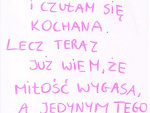 I CZUŁAM SIĘ
KOCHANA.
LECZ TERAZ
JUŻ WIEM, ŻE
MIŁOŚĆ WYGASA,
A JEDYNYM TEGO